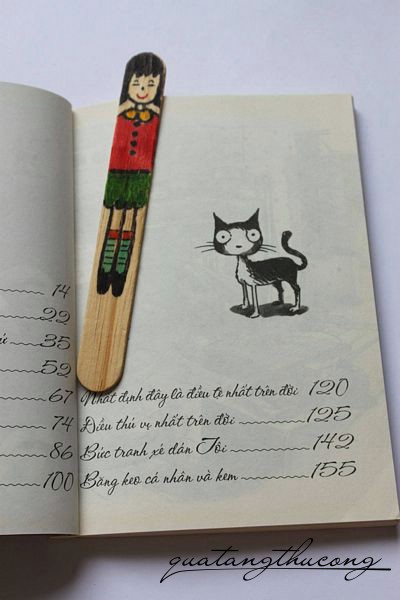 14
22
35
52
67
74
86
100
Nhất định đây là điều tệ nhất trên đời 120
Điều thú vị nhất trên đời 125
Bức tranh xé dán Tôi 142
Băng keo cá nhân và kem 155
quatangthucong